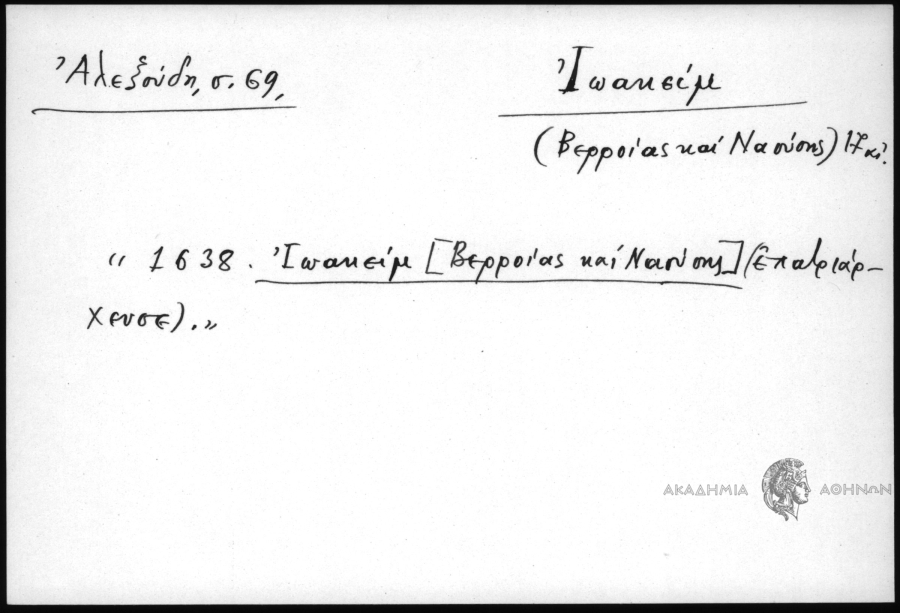 Ἀλεξούδη, σ. 69,
Ἰωακείμ
(Βερροίας καί Ναούσης) 17
„ 1638. Ἰωακείμ [Βερροίας καί Ναούσης] (ἐπατριάρ-
χευσε).„
ΑΚΑΔΗΜΙΑ ΑΘΗΝΩΝ